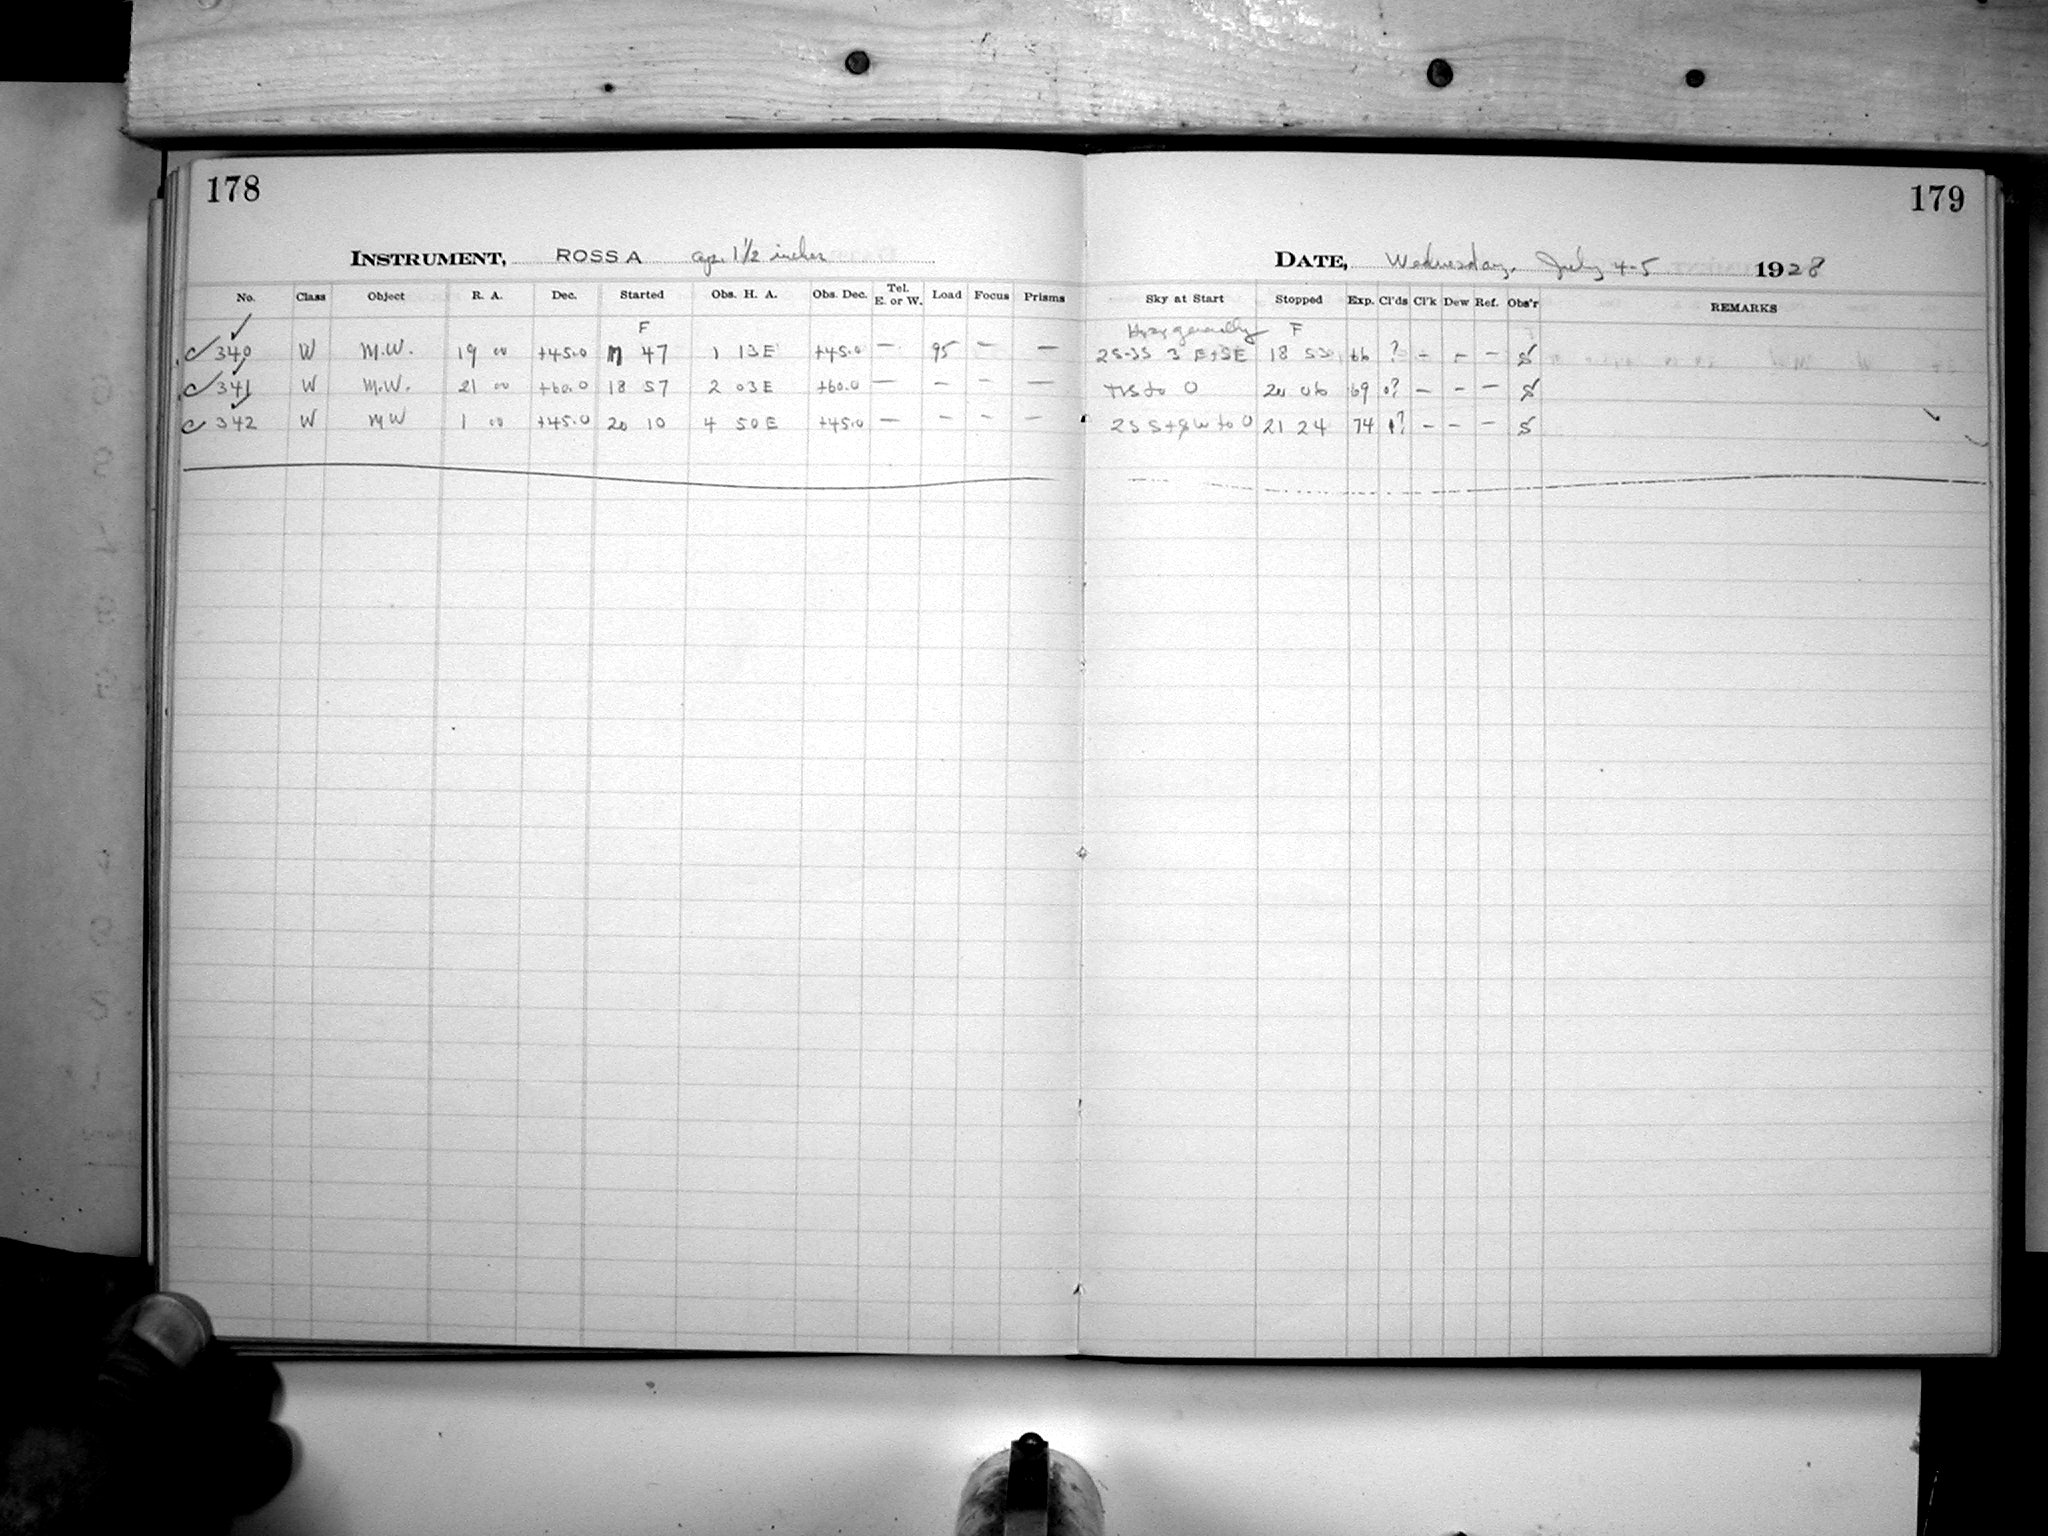 178
179
INSTRUMENT, ROSS A ap. 1 1/2 inches
DATE, Wednesday, July 4-5 1928
No. Class Object R. A. Dec. Started Obs. H. A. Obs. Dec. Tel. E. or W. Load Focus Prisms Sky at Start Stopped Exp. Cl'ds Cl'k Dew Ref. Obs'r REMARKS
F Hazy generally F
340 W M.W. 19 00 +45.0 47 1 13 E +45.0 — 95 — — 2S-3S 3 E+SE 18 53 66 ? — — — S
341 W M.W. 21 00 +60.0 18 57 2 03 E +60.0 — — — — to 0 20 06 69 0? — — — S
342 W MW 1 00 +45.0 20 10 4 50 E +45.0 — — — — 2S S+SW to 0 21 24 74 ? — — — S